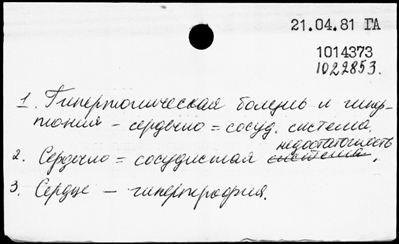 21.04.81 ГА
1014373
1022853.
1. Гипертоническая болезнь и гипер-
тония - сердечно = сосуд. система.
недостаточность
2. Сердечно = сосудистая система.
3. Сердце - гипертрофия.